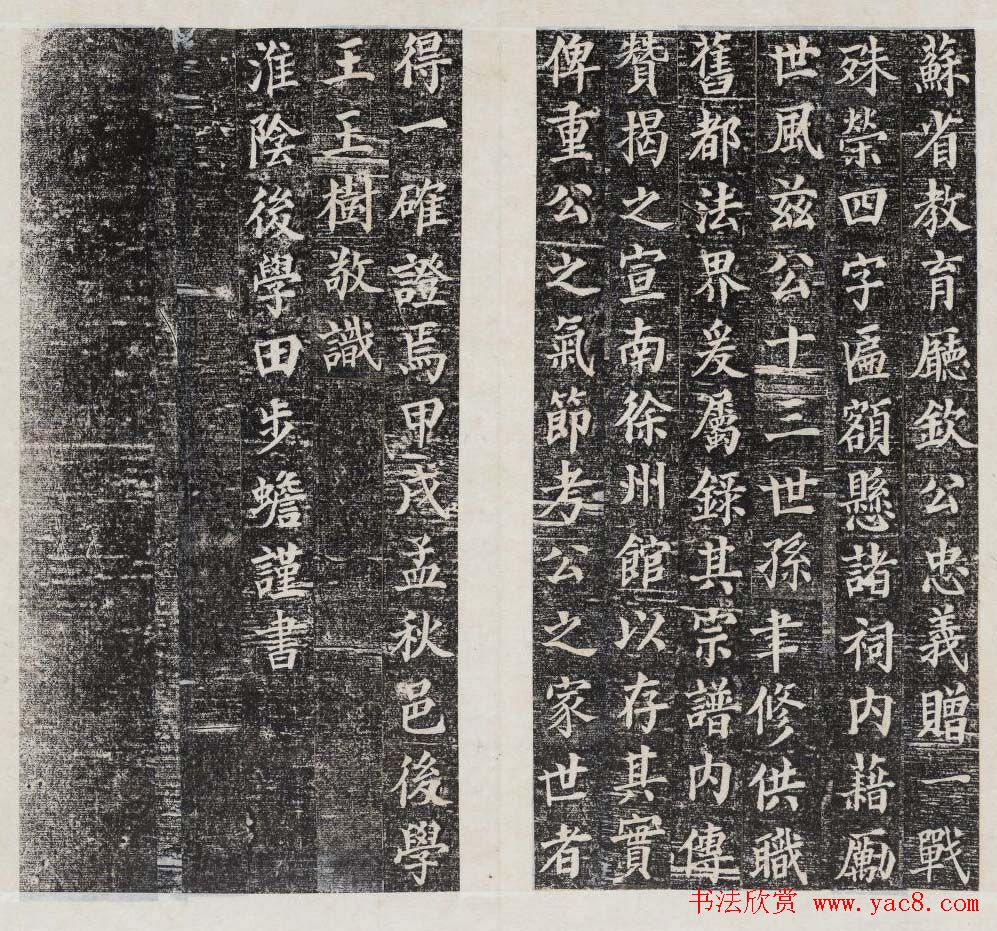 蘇省教育廳欽公忠義贈一戰
殊榮四字匾額懸諸祠内藉勵
世風兹公十三世孫聿修供職
舊都法界爰屬錄其宗譜内傳
贊揭之宣南徐州館以存其實
俾重公之氣節考公之家世者
得一確證焉甲戌孟秋邑後學
王玉樹敬識
淮陰後學田步蟾謹書
书法欣赏 www.yac8.com